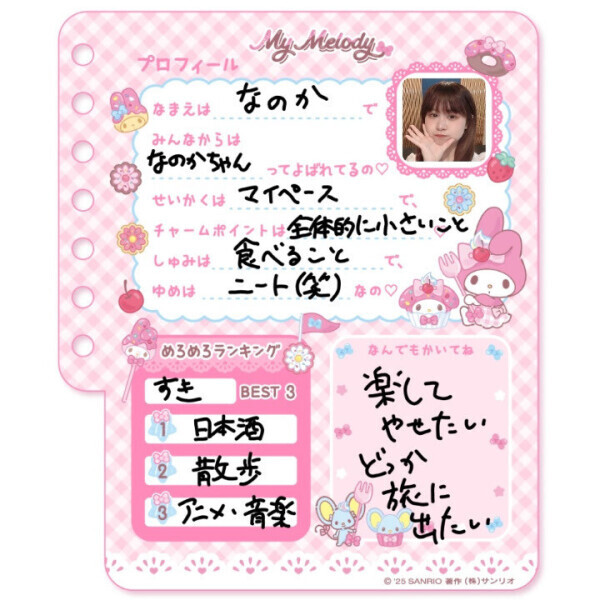 My Melody
プロフィール
なまえは なのか で
みんなからは
なのかちゃん ってよばれてるの♡
せいかくは マイペース で、
チャームポイントは 全体的に小さいこと
しゅみは 食べること で、
ゆめは ニート(笑) なの♡
めろめろランキング
すき BEST 3
1 日本酒
2 散歩
3 アニメ・音楽
なんでもかいてね
楽して
やせたい
どっか
旅に
出たい
© '25 SANRIO 著作(株)サンリオ